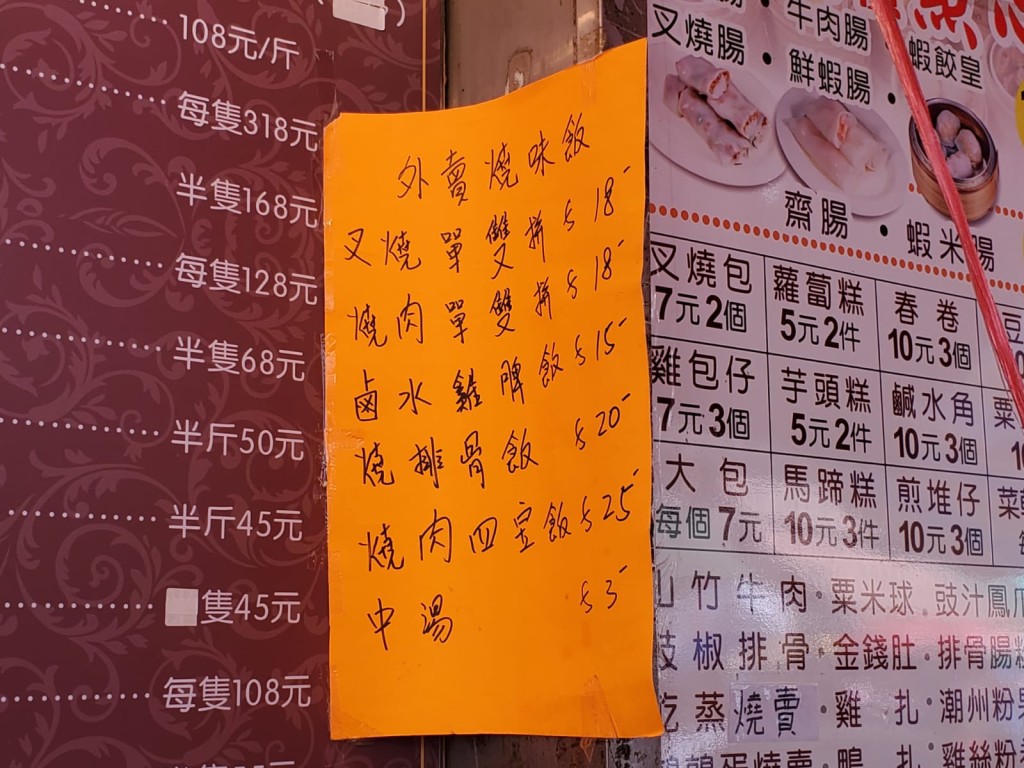 108元/斤
每隻318元
半隻168元
每隻128元
半隻68元
半斤50元
半斤45元
隻45元
每隻108元
外賣燒味飯
叉燒單雙拼 $18-
燒肉單雙拼 $18-
鹵水雞脾飯 $15-
燒排骨飯 $20-
燒肉四宝飯 $25-
中湯 $3-
牛肉腸
叉燒腸・鮮蝦腸・蝦餃皇
齋腸・蝦米腸
叉燒包 7元2個
蘿蔔糕 5元2件
春卷 10元3個
雞包仔 7元3個
芋頭糕 5元2件
鹹水角 10元3個
大包 每個7元
馬蹄糕 10元3件
煎堆仔 10元3個
山竹牛肉・粟米球・豉汁鳳爪
豉椒排骨・金錢肚・排骨腸粉
乾蒸燒賣・雞扎・潮州粉果
鵪鶉蛋燒賣・鴨扎・雞絲粉